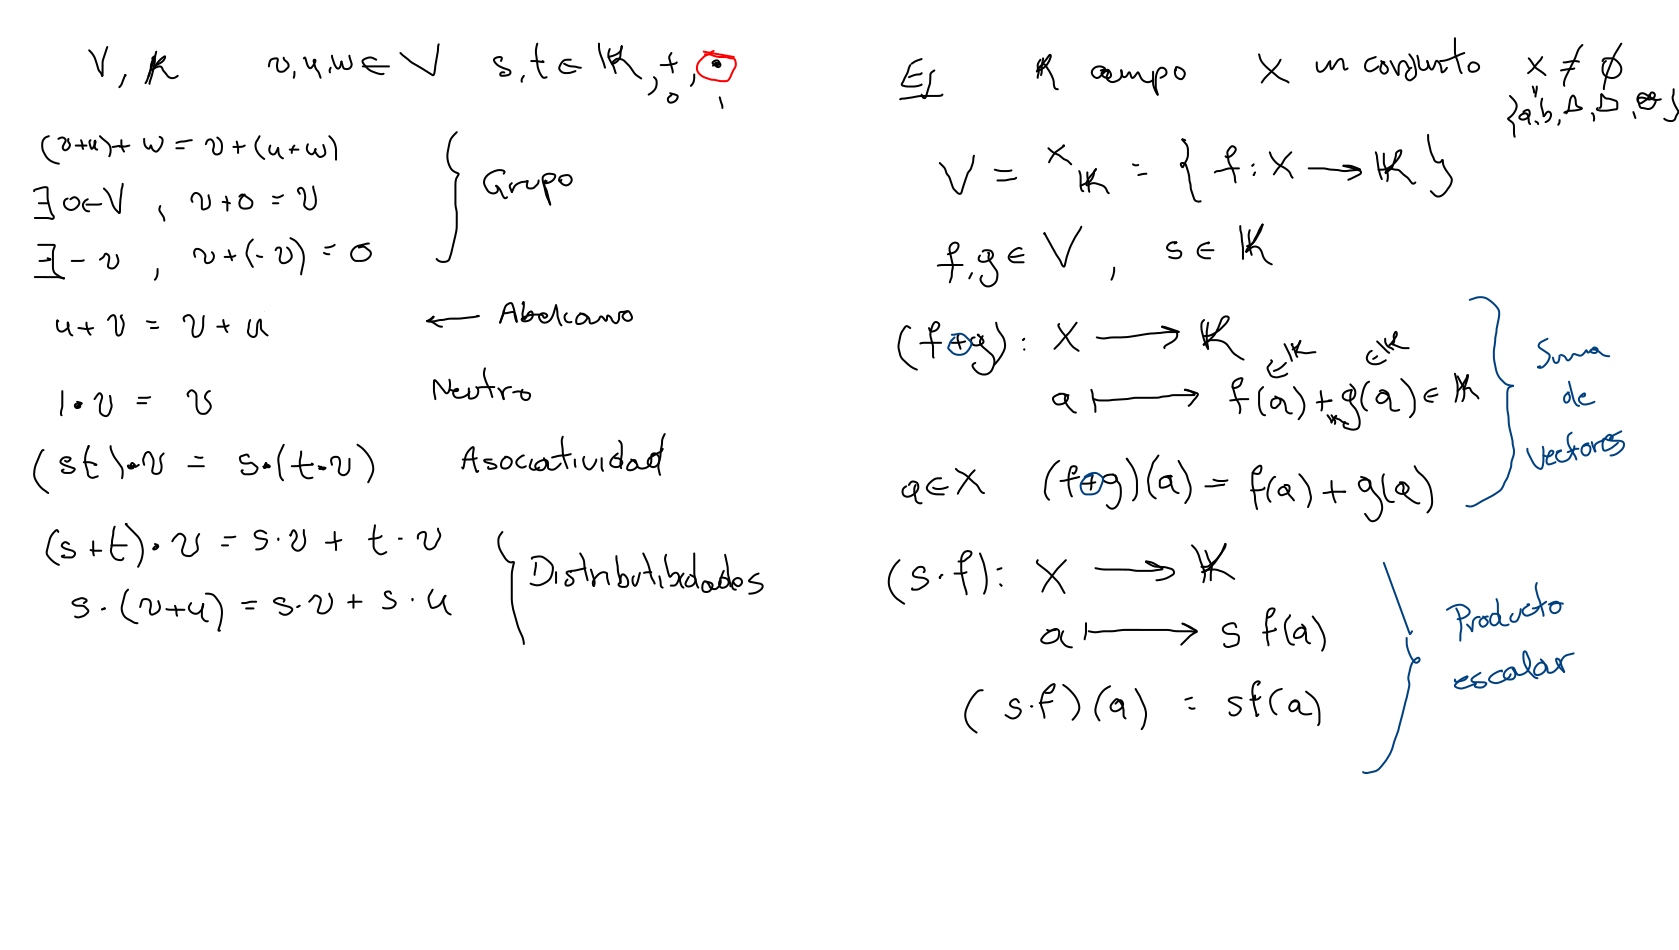 V, K   v,u,w ∈ V   s,t ∈ K, +, •
0   1
(v+u)+w = v+(u+w)
∃ 0∈V , v+0 = v
Grupo
∃ -v , v+(-v) = 0
u+v = v+u   ← Abeliano
1•v = v   Neutro
(st)•v = s•(t•v)   Asociatividad
(s+t)•v = s·v + t·v
Distributibidades
s·(v+u) = s·v + s·u
Ej   K campo   X un conjunto   X ≠ ∅
V = ˣK = { f : X → K }
f,g ∈ V , s ∈ K
(f+g) : X → K
∈K   ∈K
a ↦ f(a) +_K g(a) ∈ K
a∈X   (f+g)(a) = f(a) + g(a)
Suma
de
Vectores
(s·f) : X → K
a ↦ s f(a)
(s·f)(a) = sf(a)
Producto
escalar